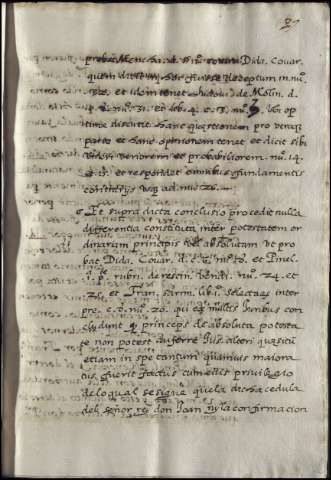 probat Menchac. d. nu. Dida. Covar.
quem dicit in hoc fuisse deceptum in nu.
et idem tenet Ludovi. de Molin. d.
p. nu. 31. et lib. 4. c. 3. nu. ubi op
time discutit hanc quaestionem pro utraq
parte et hanc opinionem tenet et dicit sibi
videri veriorem et probabiliorem nu. 14.
et 15. et respondet omnibus fundamentis
contrarijs usq ad nu. 26.
Et supra dicta conclusio procedit nulla
differentia constituta inter potestatem or
dinariam principis vel absolutam ut pro
bat Dida. Covar. d. c. 6. nu. 8. et Pinel.
1. p. rubri. de rescin. vendi. nu. 24. et
et Fran. Sarm. lib. 1. selectar. inter
pre. c. 8. nu. 20. qui ex multis iuribus con
cludunt q princeps de absoluta potesta
te non potest auferre Jus alteri quaesitum
etiam in spe tantum quamvis maiora
tus fuerit factus cum eius privilegio
delo qual se sigue que la dicha cedula
del señor rei don Joan ny la confirmacion